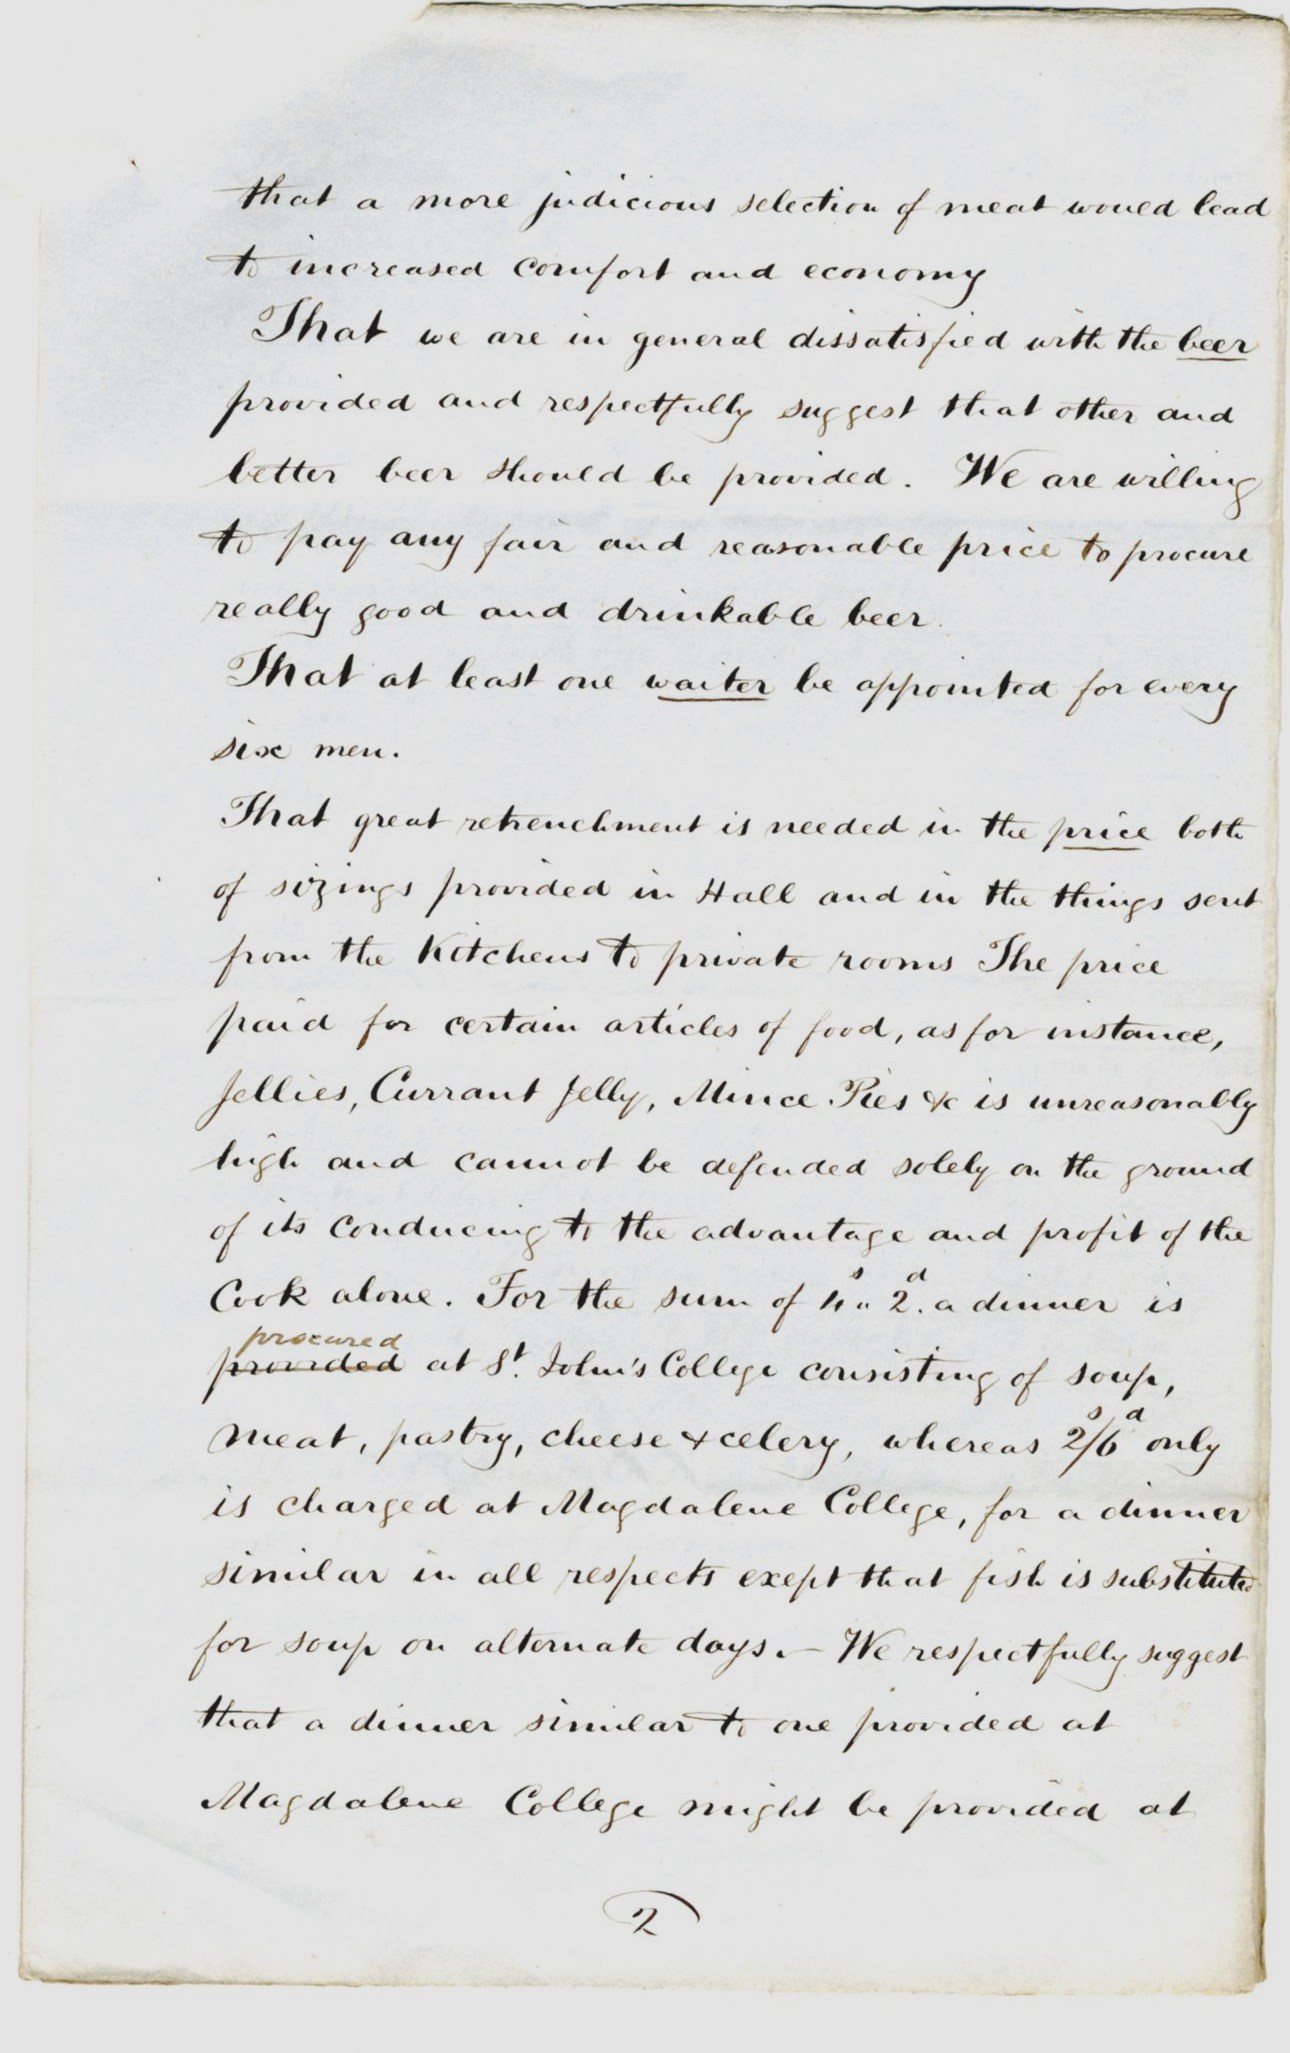 that a more judicious selection of meat would lead
to increased comfort and economy
That we are in general dissatisfied with the beer
provided and respectfully suggest that other and
better beer should be provided. We are willing
to pay any fair and reasonable price to procure
really good and drinkable beer.
That at least one waiter be appointed for every
six men.
That great retrenchment is needed in the price both
of sizings provided in Hall and in the things sent
from the Kitchens to private rooms The price
paid for certain articles of food, as for instance,
Jellies, Currant Jelly, Mince Pies &c is unreasonably
high and cannot be defended solely on the ground
of its conducing to the advantage and profit of the
Cook alone. For the sum of 4s" 2d. a dinner is
procured
provided at St. John's College consisting of soup,
meat, pastry, cheese & celery, whereas 2s/6d only
is charged at Magdalene College, for a dinner
similar in all respects exept that fish is substituted
for soup on alternate days.— We respectfully suggest
that a dinner similar to one provided at
Magdalene College might be provided at
2